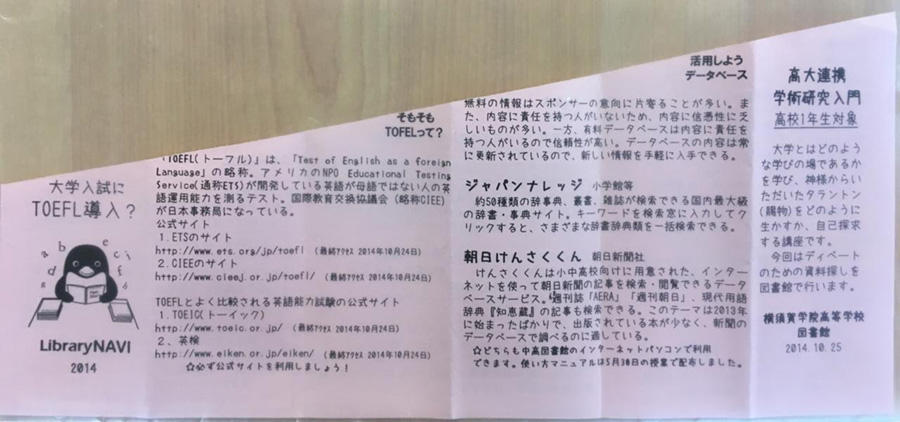 大学入試に
TOEFL導入?
a b c d e f
LibraryNAVI
2014
そもそも
TOFELって?
「TOEFL(トーフル)」は、「Test of English as a foreign
Language」の略称。アメリカのNPO Educational Testing
Service(通称ETS)が開発している英語が母語ではない人の英
語運用能力を測るテスト。国際教育交換協議会(略称CIEE)
が日本事務局になっている。
公式サイト
1.ETSのサイト
http://www.ets.org/jp/toefl (最終アクセス 2014年10月24日)
2.CIEEのサイト
http://www.cieej.or.jp/toefl/ (最終アクセス 2014年10月24日)
TOEFLとよく比較される英語能力試験の公式サイト
1.TOEIC(トーイック)
http://www.toeic.or.jp/ (最終アクセス 2014年10月24日)
2、英検
http://www.eiken.or.jp/eiken/ (最終アクセス 2014年10月24日)
☆必ず公式サイトを利用しましょう!
活用しよう
データベース
無料の情報はスポンサーの意向に片寄ることが多い。ま
た、内容に責任を持つ人がいないため、内容に信憑性に乏
しいものが多い。一方、有料データベースは内容に責任を
持つ人がいるので信頼性が高い。データベースの内容は常
に更新されているので、新しい情報を手軽に入手できる。
ジャパンナレッジ 小学館等
約50種類の辞事典、叢書、雑誌が検索できる国内最大級
の辞書・事典サイト。キーワードを検索窓に入力してク
リックすると、さまざまな辞書辞典類を一括検索できる。
朝日けんさくくん 朝日新聞社
けんさくくんは小中高校向けに用意された、インター
ネットを使って朝日新聞の記事を検索・閲覧できるデータ
ベースサービス。週刊誌「AERA」「週刊朝日」、現代用語
辞典『知恵蔵』の記事も検索できる。このテーマは2013年
に始まったばかりで、出版されている本が少なく、新聞の
データベースで調べるのに適している。
☆どちらも中高図書館のインターネットパソコンで利用
できます。使い方マニュアルは5月30日の授業で配布しました。
高大連携
学術研究入門
高校1年生対象
大学とはどのよう
な学びの場であるか
を学び、神様からい
ただいたタラントン
(賜物)をどのように
生かすか、自己探求
する講座です。
今回はディベート
のための資料探しを
図書館で行います。
横須賀学院高等学校
図書館
2014.10.25